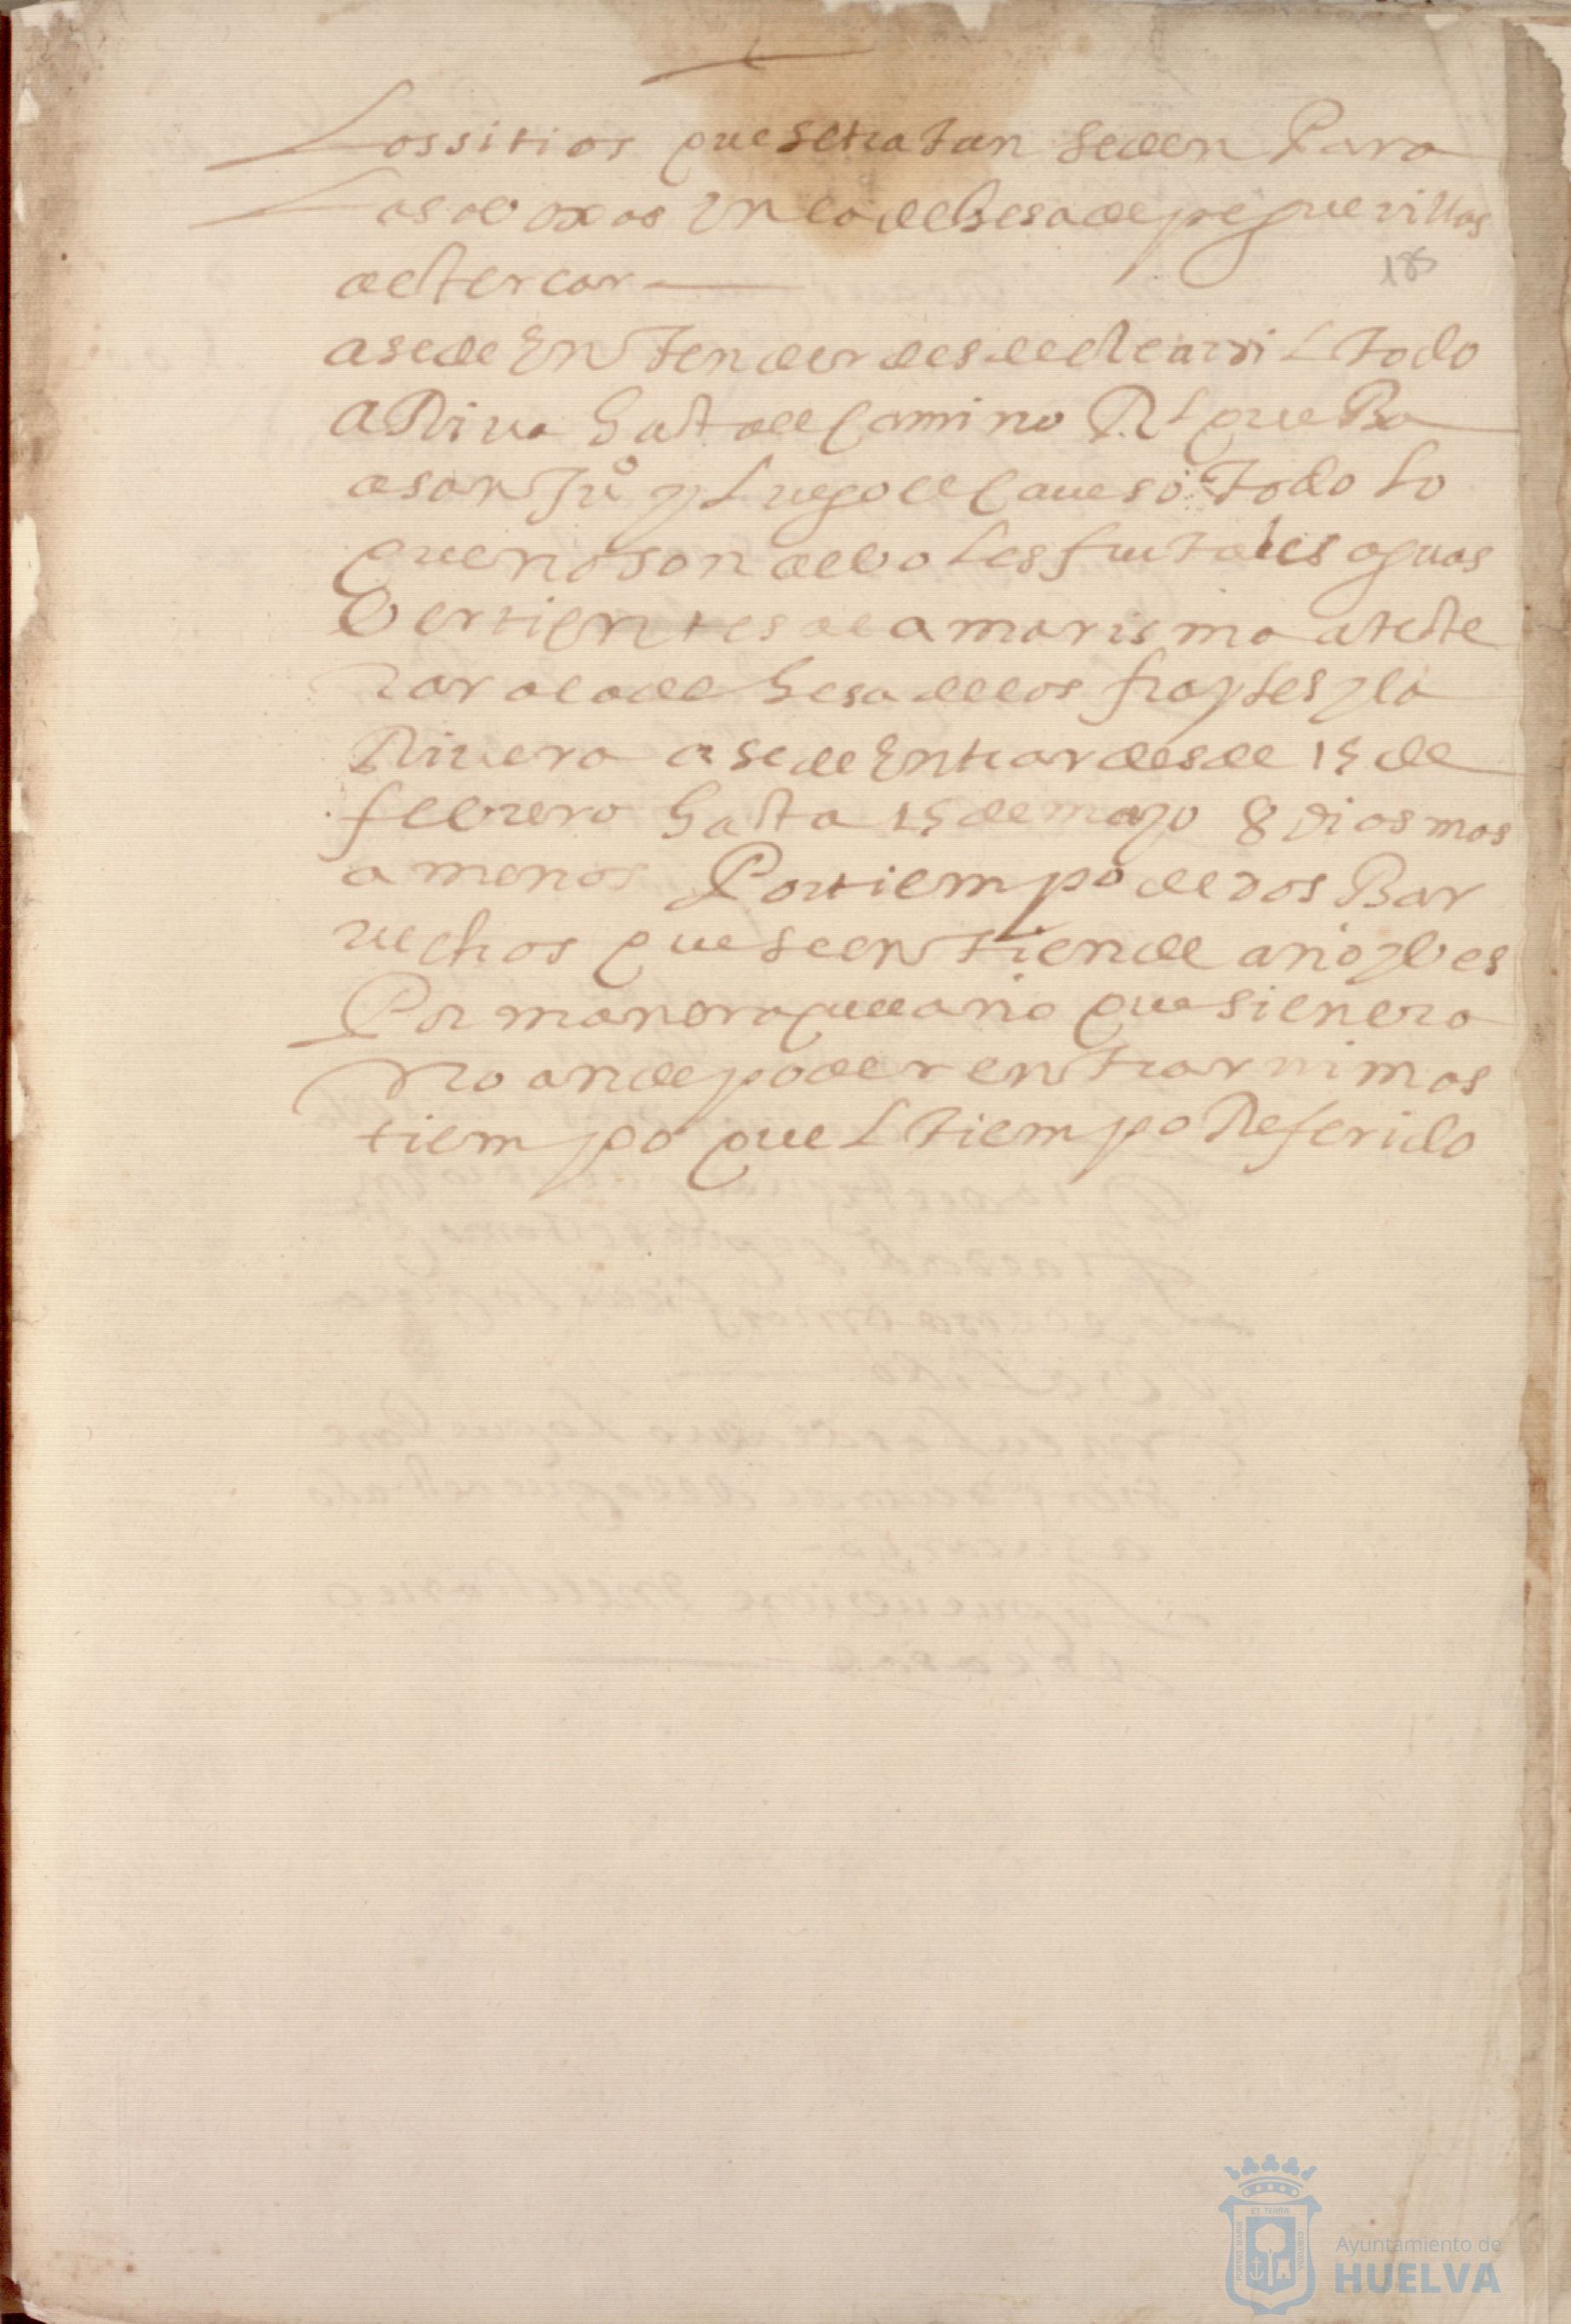 Los sitios que se tratan se den Para
Las obexas En la dehesa de peguerillas
a estercar
a se de Entender desde el carril todo
aRiva hasta el Camino Rl que Ba
a san Juº y Luego el Caveso todo Lo
que no son arboles frutales aguas
Vertientes de a marisma a teste
rar a la dehesa de los frayles y la
Rivera a se de Entrar desde 15 de
febrero hasta 15 de mayo 8 dias mas
a menos Por tiempo de dos Bar
vechos que se entiende año y ves
Por manera que el año que sienera
No an de poder entrar ni mas
tiempo que L tiempo Referido
185
Ayuntamiento de
HUELVA